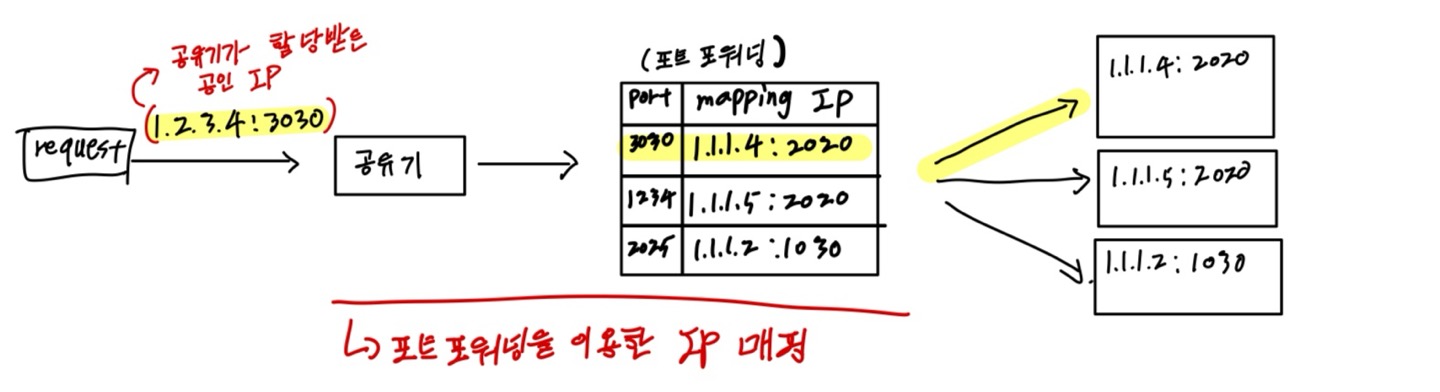 공유기가 할당받은
공인 IP
(1.2.3.4:3030)
request
공유기
(포트 포워딩)
port mapping IP
3030 1.1.1.4:2020
1234 1.1.1.5:2020
2025 1.1.1.2:1030
1.1.1.4:2020
1.1.1.5:2020
1.1.1.2:1030
↳ 포트포워딩을 이용한 IP 매핑